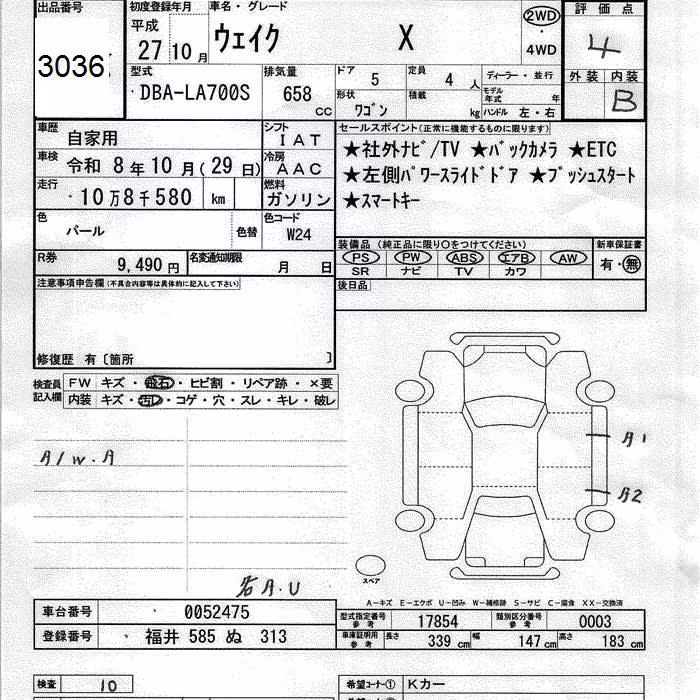 出品番号 初度登録年月 車名・グレード 評価点
3036 平成 27 10月 ウェイク X 2WD ・ 4WD 4
外装 内装 B
型式 排気量 ドア 5 定員 4 人 ディーラー・並行
DBA-LA700S 658 cc 形状 ワゴン 積載 kg モデル年式 年 ハンドル 左・右
車歴 自家用 シフト IAT セールスポイント(正常に機能するものに限ります)
車検 令和 8年 10月 (29日) 冷房 AAC ★社外ナビ/TV ★バックカメラ ★ETC
走行 ・10万8千580 km 燃料 ガソリン ★左側パワースライドドア ★プッシュスタート
★スマートキー
色 パール 色替 色コード W24
装備品(純正品に限り〇をつけてください) 新車保証書
R券 9,490円 名変通知期限 月 日 PS PW ABS エアB AW 有・無
SR ナビ TV カワ
注意事項申告欄(不具合内容等は具体的に記入して下さい) 後日品
修復歴 有〔箇所 〕
検査員記入欄 FW キズ・飛石・ヒビ割・リペア跡・×要
内装 キズ・汚れ・コゲ・穴・スレ・キレ・破レ
A/W.A
A1
A2
スペア
A.U
A-キズ E-エクボ U-凹み W-補修跡 S-サビ C-腐食 XX-交換済
車台番号 ・ 0052475 型式指定番号 参考 17854 類別区分番号 参考 0003
登録番号 ・ 福井 585 ぬ 313 車庫証明用 参考 長さ 339 cm 幅 147 cm 高さ 183 cm
検査 10 希望コーナー① Kカー